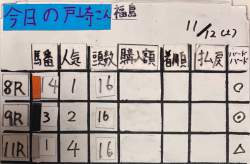 今日の戸崎さん 福島 11/12(土)
馬番 人気 頭数 購入額 着順 払戻 ハードハード
8R 14 1 16 ◎
9R 3 2 16 ◎
11R 1 4 16 △